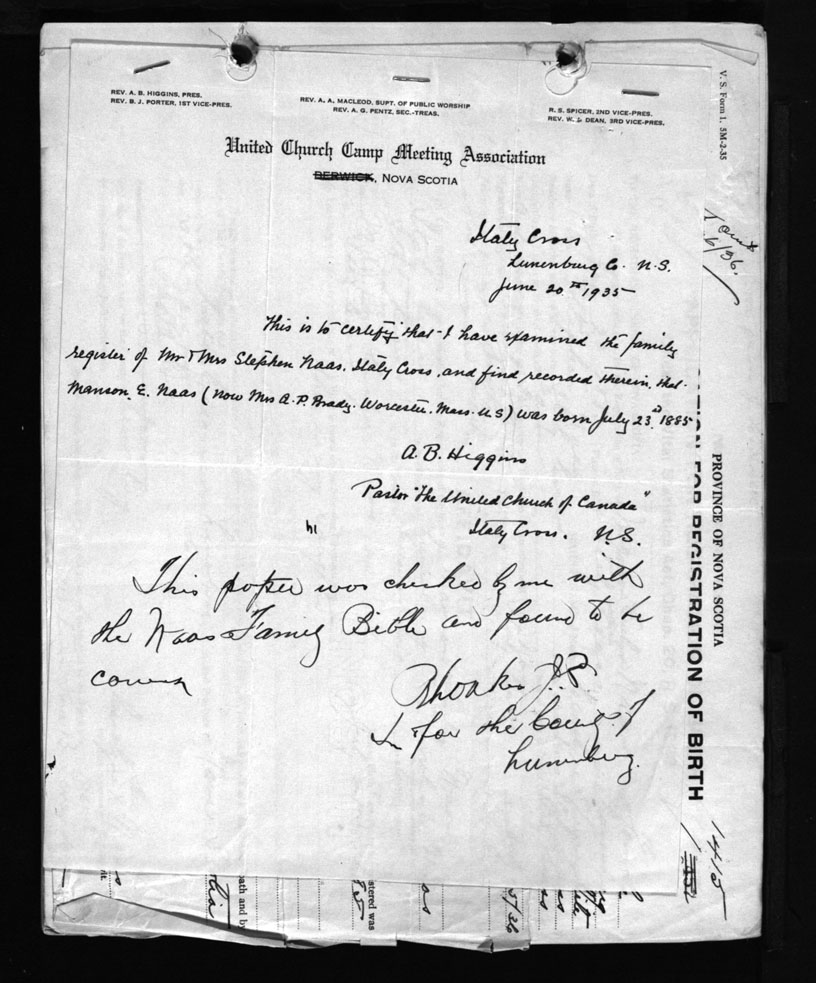 REV. A. B. HIGGINS, PRES.
REV. B. J. PORTER, 1ST VICE-PRES.
REV. A. A. MACLEOD, SUPT. OF PUBLIC WORSHIP
REV. A. G. PENTZ, SEC.-TREAS.
R. S. SPICER, 2ND VICE-PRES.
REV. W. J. DEAN, 3RD VICE-PRES.
United Church Camp Meeting Association
BERWICK, NOVA SCOTIA
Italy Cross
Lunenburg Co. N.S.
June 20th 1935
This is to certify that I have examined the family
register of Mr & Mrs Stephen Naas. Italy Cross, and find recorded therein, that
Manson. E. Naas (now Mrs A. P. Brady. Worcester. Mass. U.S) was born July 23d 1885
A. B. Higgins
Pastor "The United Church of Canada"
Italy Cross. N.S.
This paper was checked by me with
the Naas Family Bible and found to be
J.P.
In & for the County of
Lunenburg.
V. S. Form 1. 5M-2-35
6/36.
PROVINCE OF NOVA SCOTIA
FOR REGISTRATION OF BIRTH
1415
stered was
ath and by